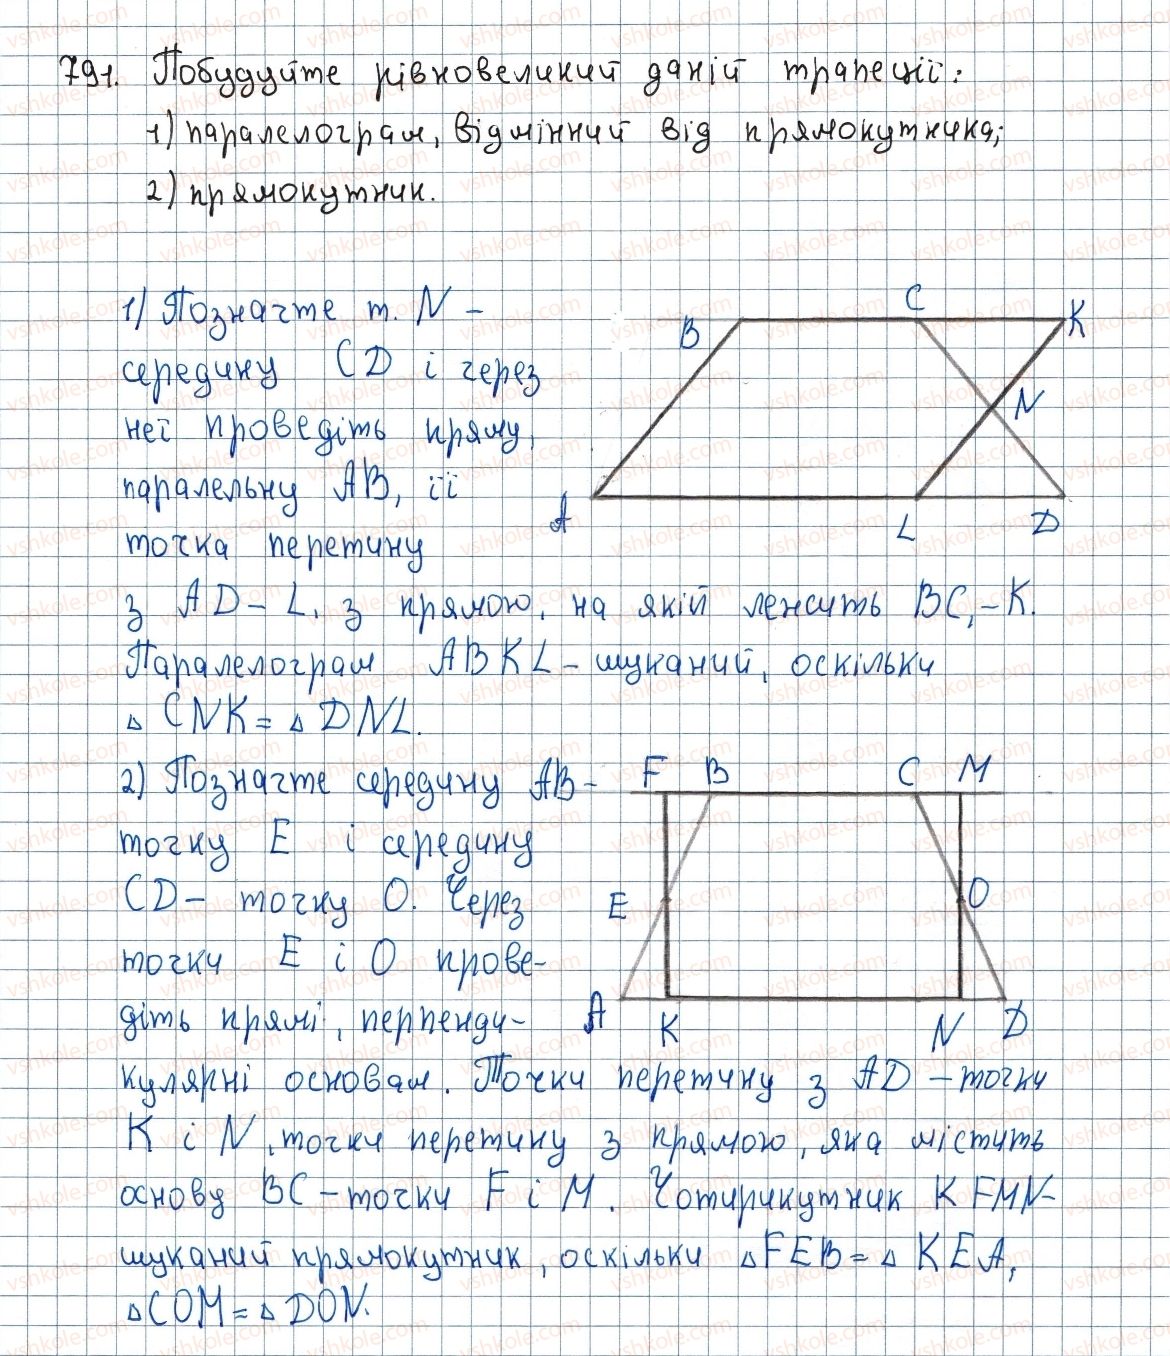 791. Побудуйте рівновеликий даній трапеції:
1) паралелограм, відмінний від прямокутника;
2) прямокутник.
1) Позначте т. N –
середину CD і через
неї проведіть пряму,
паралельну AB, її
точка перетину
з AD – L, з прямою, на якій лежить BC, – K.
Паралелограм ABKL – шуканий, оскільки
△ CNK = △ DNL.
B C K
N
A L D
2) Позначте середину AB –
точку E і середину
CD – точку O. Через
точки E і O прове-
діть прямі, перпенди-
кулярні основам. Точки перетину з AD – точки
K і N, точки перетину з прямою, яка містить
основу BC – точки F і M. Чотирикутник KFMN –
шуканий прямокутник, оскільки △FEB = △ KEA,
△COM = △DON.
F B C M
E O
A K N D
vshkole.com